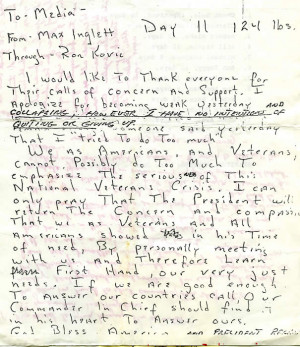 To- Media-
Day 11 124 lbs.
From- Max Inglett
Through- Ron Kovic
I would like To Thank everyone for
Their calls of concern And Support. I
Apologize for becoming weak yesterday AND
COLLAPSING, HOWEVER I HAVE NO INTENTIONS OF
QUITING OR GIVING UP. Someone said yesterday
That I "tried To do Too much".
We as Americans and Veterans,
cannot Possibly do Too Much To
emphasize The seriousness of This
National Veterans Crisis. I can
only pray That The President will
return The Concern and compassi
That we as Veterans and All
Americans showed in his Time
of need, By personally meeting
with us and Therefore Learn
First Hand, our very just
needs. If we are good enough
To Answer our countries call, Our
Commander In Chief should find it
in his heart To Answer ours.
God Bless America AND PRESIDENT